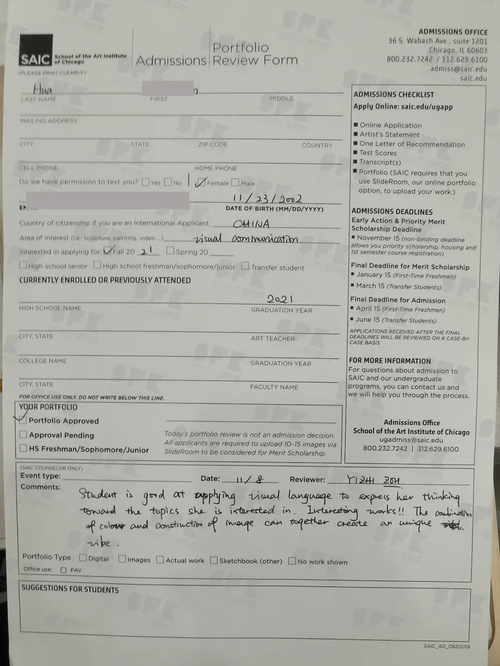 SAIC School of the Art Institute of Chicago
Portfolio
Admissions Review Form
(PLEASE PRINT CLEARLY)
Hua
LAST NAME FIRST MIDDLE
MAILING ADDRESS
CITY STATE ZIP CODE COUNTRY
CELL PHONE HOME PHONE
Do we have permission to text you? Yes No Female Male
11/23/2002
DATE OF BIRTH (MM/DD/YYYY)
Country of citizenship if you are an International Applicant CHINA
Area of interest (i.e.: sculpture, painting, video...) visual communication.
Interested in applying for: Fall 20 21 Spring 20
High school senior High school freshman/sophomore/junior Transfer student
CURRENTLY ENROLLED OR PREVIOUSLY ATTENDED
2021
HIGH SCHOOL NAME GRADUATION YEAR
CITY, STATE ART TEACHER
COLLEGE NAME GRADUATION YEAR
CITY, STATE FACULTY NAME
FOR OFFICE USE ONLY. DO NOT WRITE BELOW THIS LINE.
YOUR PORTFOLIO
Portfolio Approved
Approval Pending
HS Freshman/Sophomore/Junior
Today's portfolio review is not an admission decision.
All applicants are required to upload 10-15 images via
SlideRoom to be considered for Merit Scholarship.
ADMISSIONS OFFICE
36 S. Wabash Ave., suite 1201
Chicago, IL 60603
800.232.7242 / 312.629.6100
admiss@saic.edu
saic.edu
ADMISSIONS CHECKLIST
Apply Online: saic.edu/ugapp
■ Online Application
■ Artist's Statement
■ One Letter of Recommendation
■ Test Scores
■ Transcript(s)
■ Portfolio (SAIC requires that you
use SlideRoom, our online portfolio
option, to upload your work.)
ADMISSIONS DEADLINES
Early Action & Priority Merit
Scholarship Deadline
■ November 15 (non-binding deadline
allows you priority scholarship, housing and
1st semester course registration)
Final Deadline for Merit Scholarship
■ January 15 (First-Time Freshmen)
■ March 15 (Transfer Students)
Final Deadline for Admission
■ April 15 (First-Time Freshmen)
■ June 15 (Transfer Students)
APPLICATIONS RECEIVED AFTER THE FINAL
DEADLINES WILL BE REVIEWED ON A CASE-BY-
CASE BASIS.
FOR MORE INFORMATION
For questions about admission to
SAIC and our undergraduate
programs, you can contact us and
we will help you through the process.
Admissions Office
School of the Art Institute of Chicago
ugadmiss@saic.edu
800.232.7242 | 312.629.6100
(SAIC COUNSELOR ONLY)
Event type: Date: 11/8 Reviewer: YIZHI ZOU
Comments: Student is good at applying visual language to express her thinking
toward the topics she is interested in. Interesting works!! The combination
of colour and construction of image can together create an unique
vibe.
Portfolio Type Digital Images Actual work Sketchbook (other) No work shown
Office use: FAV
SUGGESTIONS FOR STUDENTS
SAIC_AD_08212019